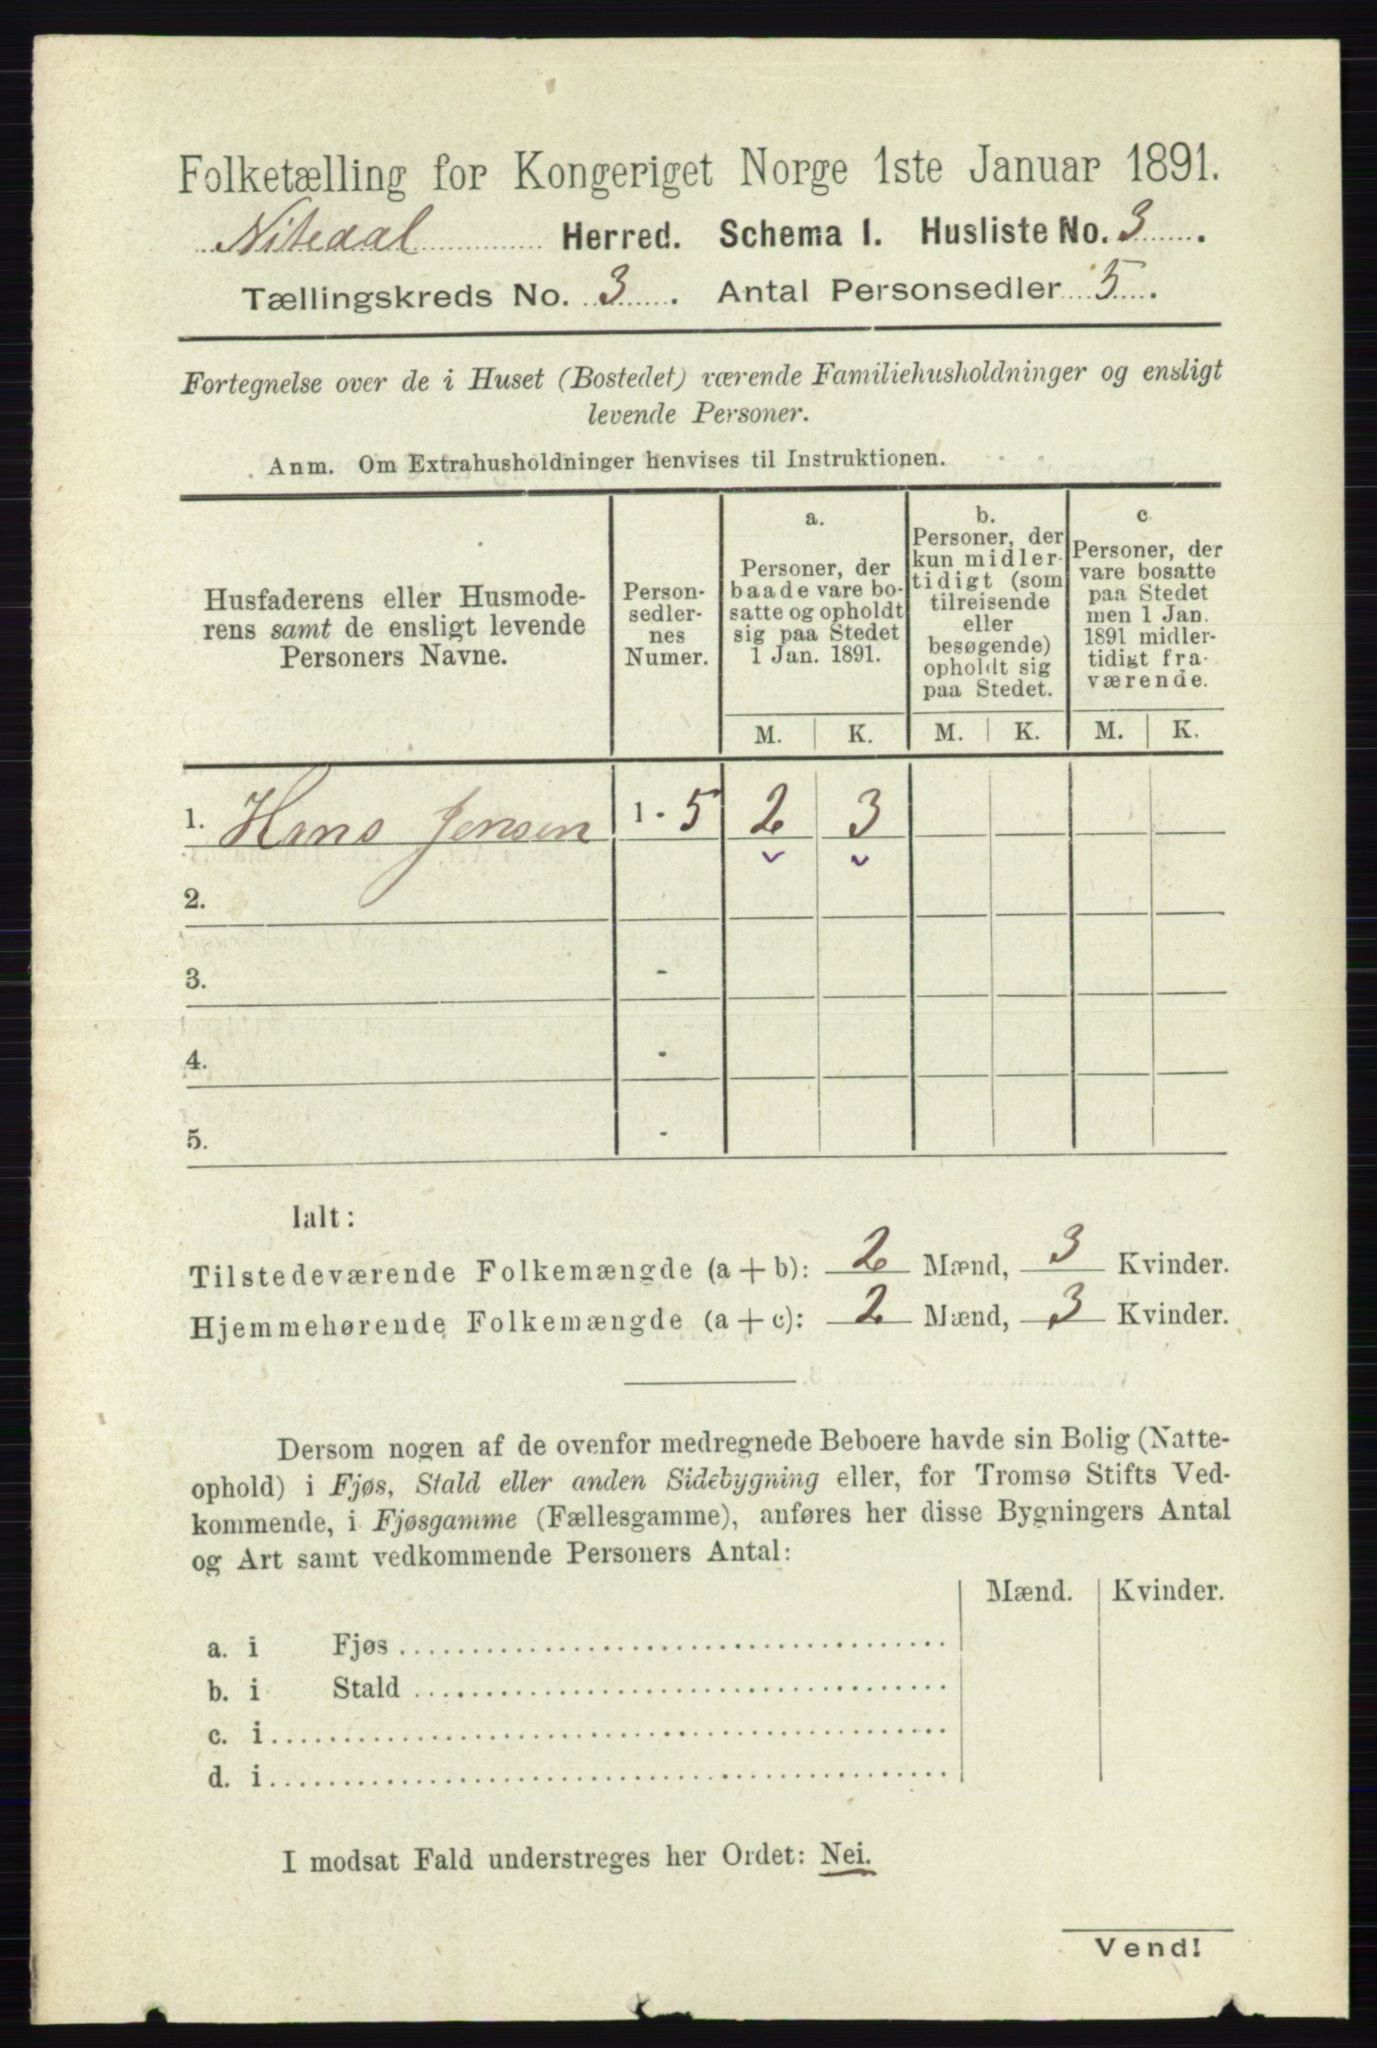 Folketælling for Kongeriget Norge 1ste Januar 1891.
Nitedal Herred. Schema 1. Husliste No. 3.
Tællingskreds No. 3. Antal Personsedler 5.
Fortegnelse over de i Huset (Bostedet) værende Familiehusholdninger og ensligt
levende Personer.
Anm. Om Extrahusholdninger henvises til Instruktionen.
Husfaderens eller Husmode-
rens samt de ensligt levende
Personers Navne.
Person-
sedler-
nes
Numer.
a.
Personer, der
baade vare bo-
satte og opholdt
sig paa Stedet
1 Jan. 1891.
b.
Personer, der
kun midler-
tidigt (som
tilreisende
eller
besøgende)
opholdt sig
paa Stedet.
c
Personer, der
vare bosatte
paa Stedet
men 1 Jan.
1891 midler-
tidigt fra-
værende.
M. K. M. K. M. K.
1. Hans Jensen 1 - 5 2 3
2.
3. -
4. -
5. -
Ialt:
Tilstedeværende Folkemængde (a + b): 2 Mænd, 3 Kvinder.
Hjemmehørende Folkemængde (a + c): 2 Mænd, 3 Kvinder.
Dersom nogen af de ovenfor medregnede Beboere havde sin Bolig (Natte-
ophold) i Fjøs, Stald eller anden Sidebygning eller, for Tromsø Stifts Ved-
kommende, i Fjøsgamme (Fællesgamme), anføres her disse Bygningers Antal
og Art samt vedkommende Personers Antal:
Mænd. Kvinder.
a. i Fjøs
b. i Stald
c. i
d. i
I modsat Fald understreges her Ordet: Nei.
Vend!